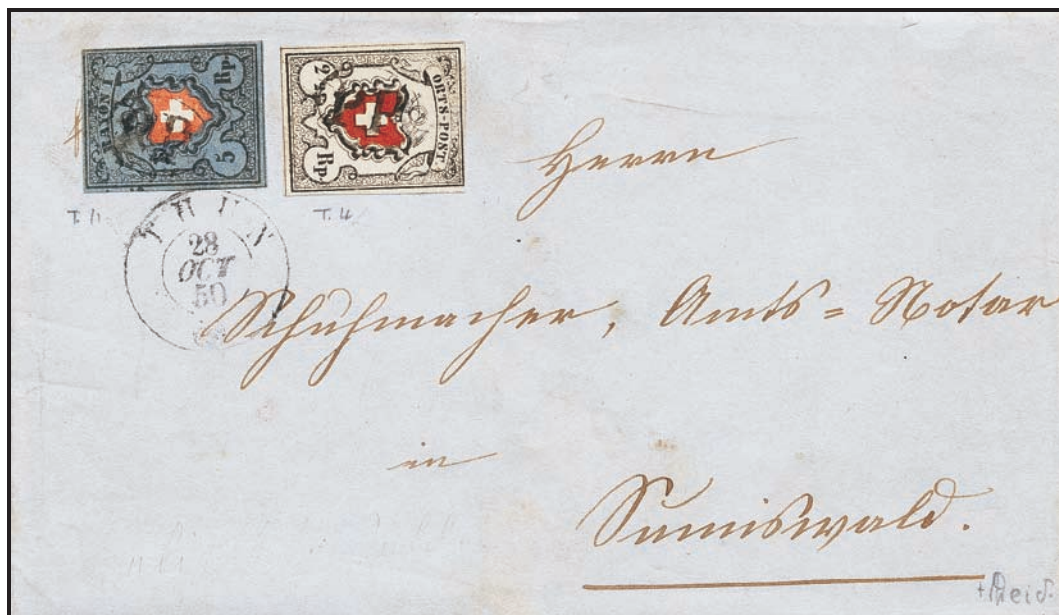 RAYON I
5 Rp.
ORTS-POST.
2½ Rp.
T. 4
THUN
28
OCT
50
Herrn
Schuhmacher, Amts = Notar
in
Sumiswald.